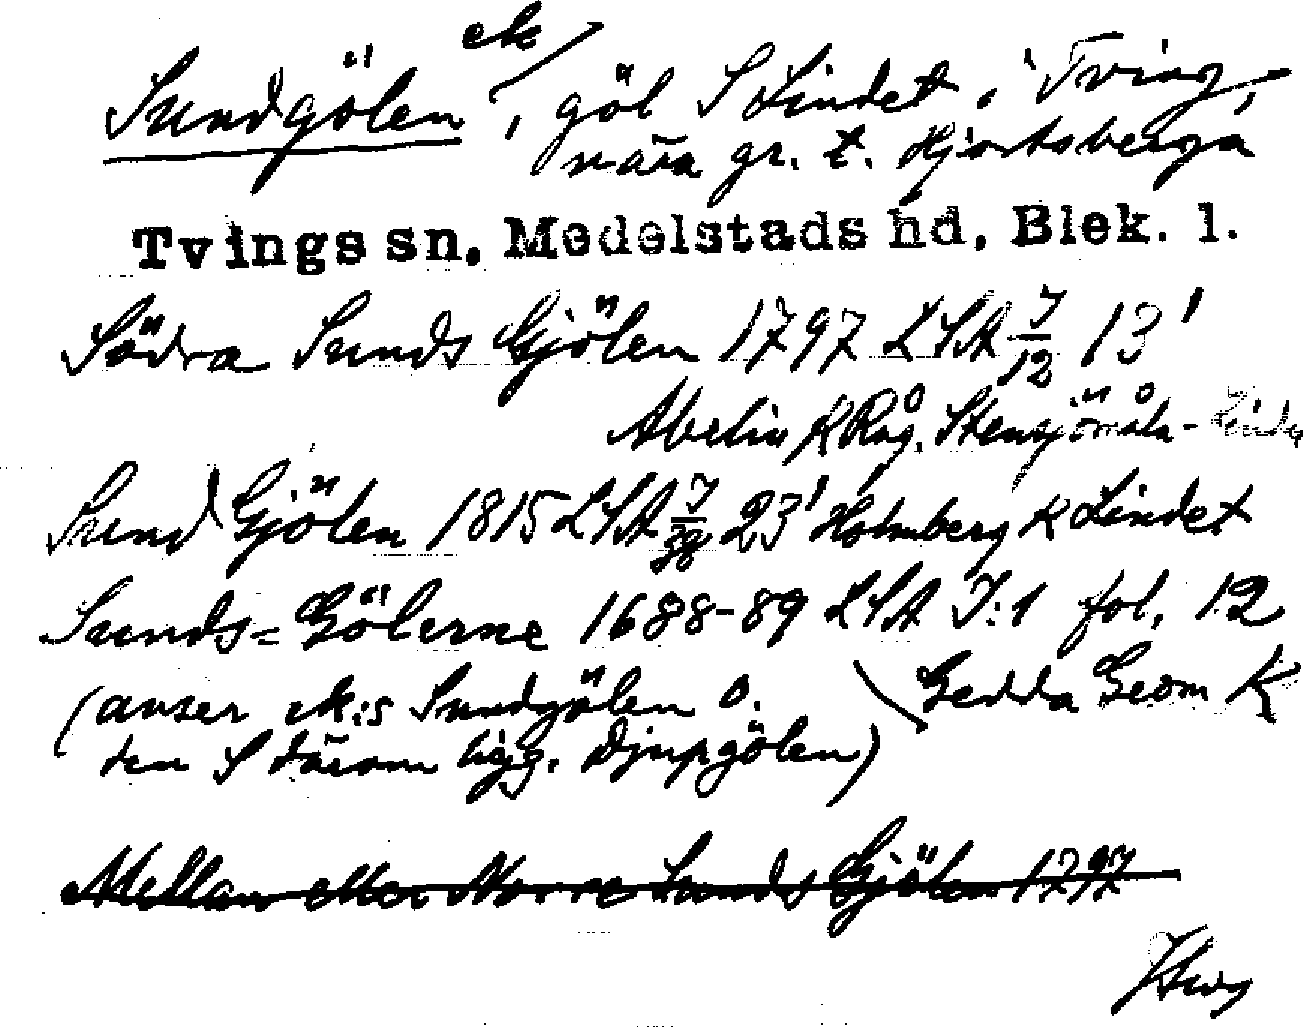 Sundgölen ek, göl S Lindet, i Tving,
nära gr. t. Hjortsberga
Tvings sn, Medelstads hd, Blek. l.
Södra Sunds Gjölen 1797 LSA 7/12 13'
Abelin K Råg. Stensjömåla-
Sund Gjölen 1815 LSA 23' Holmberg K Lindet
Sunds=Gölerne 1688-89 LSA I:1 fol. 12
(avser ek:s Sundgölen o. Gedda Geom K
den S därom ligg. Djupgölen)
Mellan eller Norre Sunds Gjölen 1797